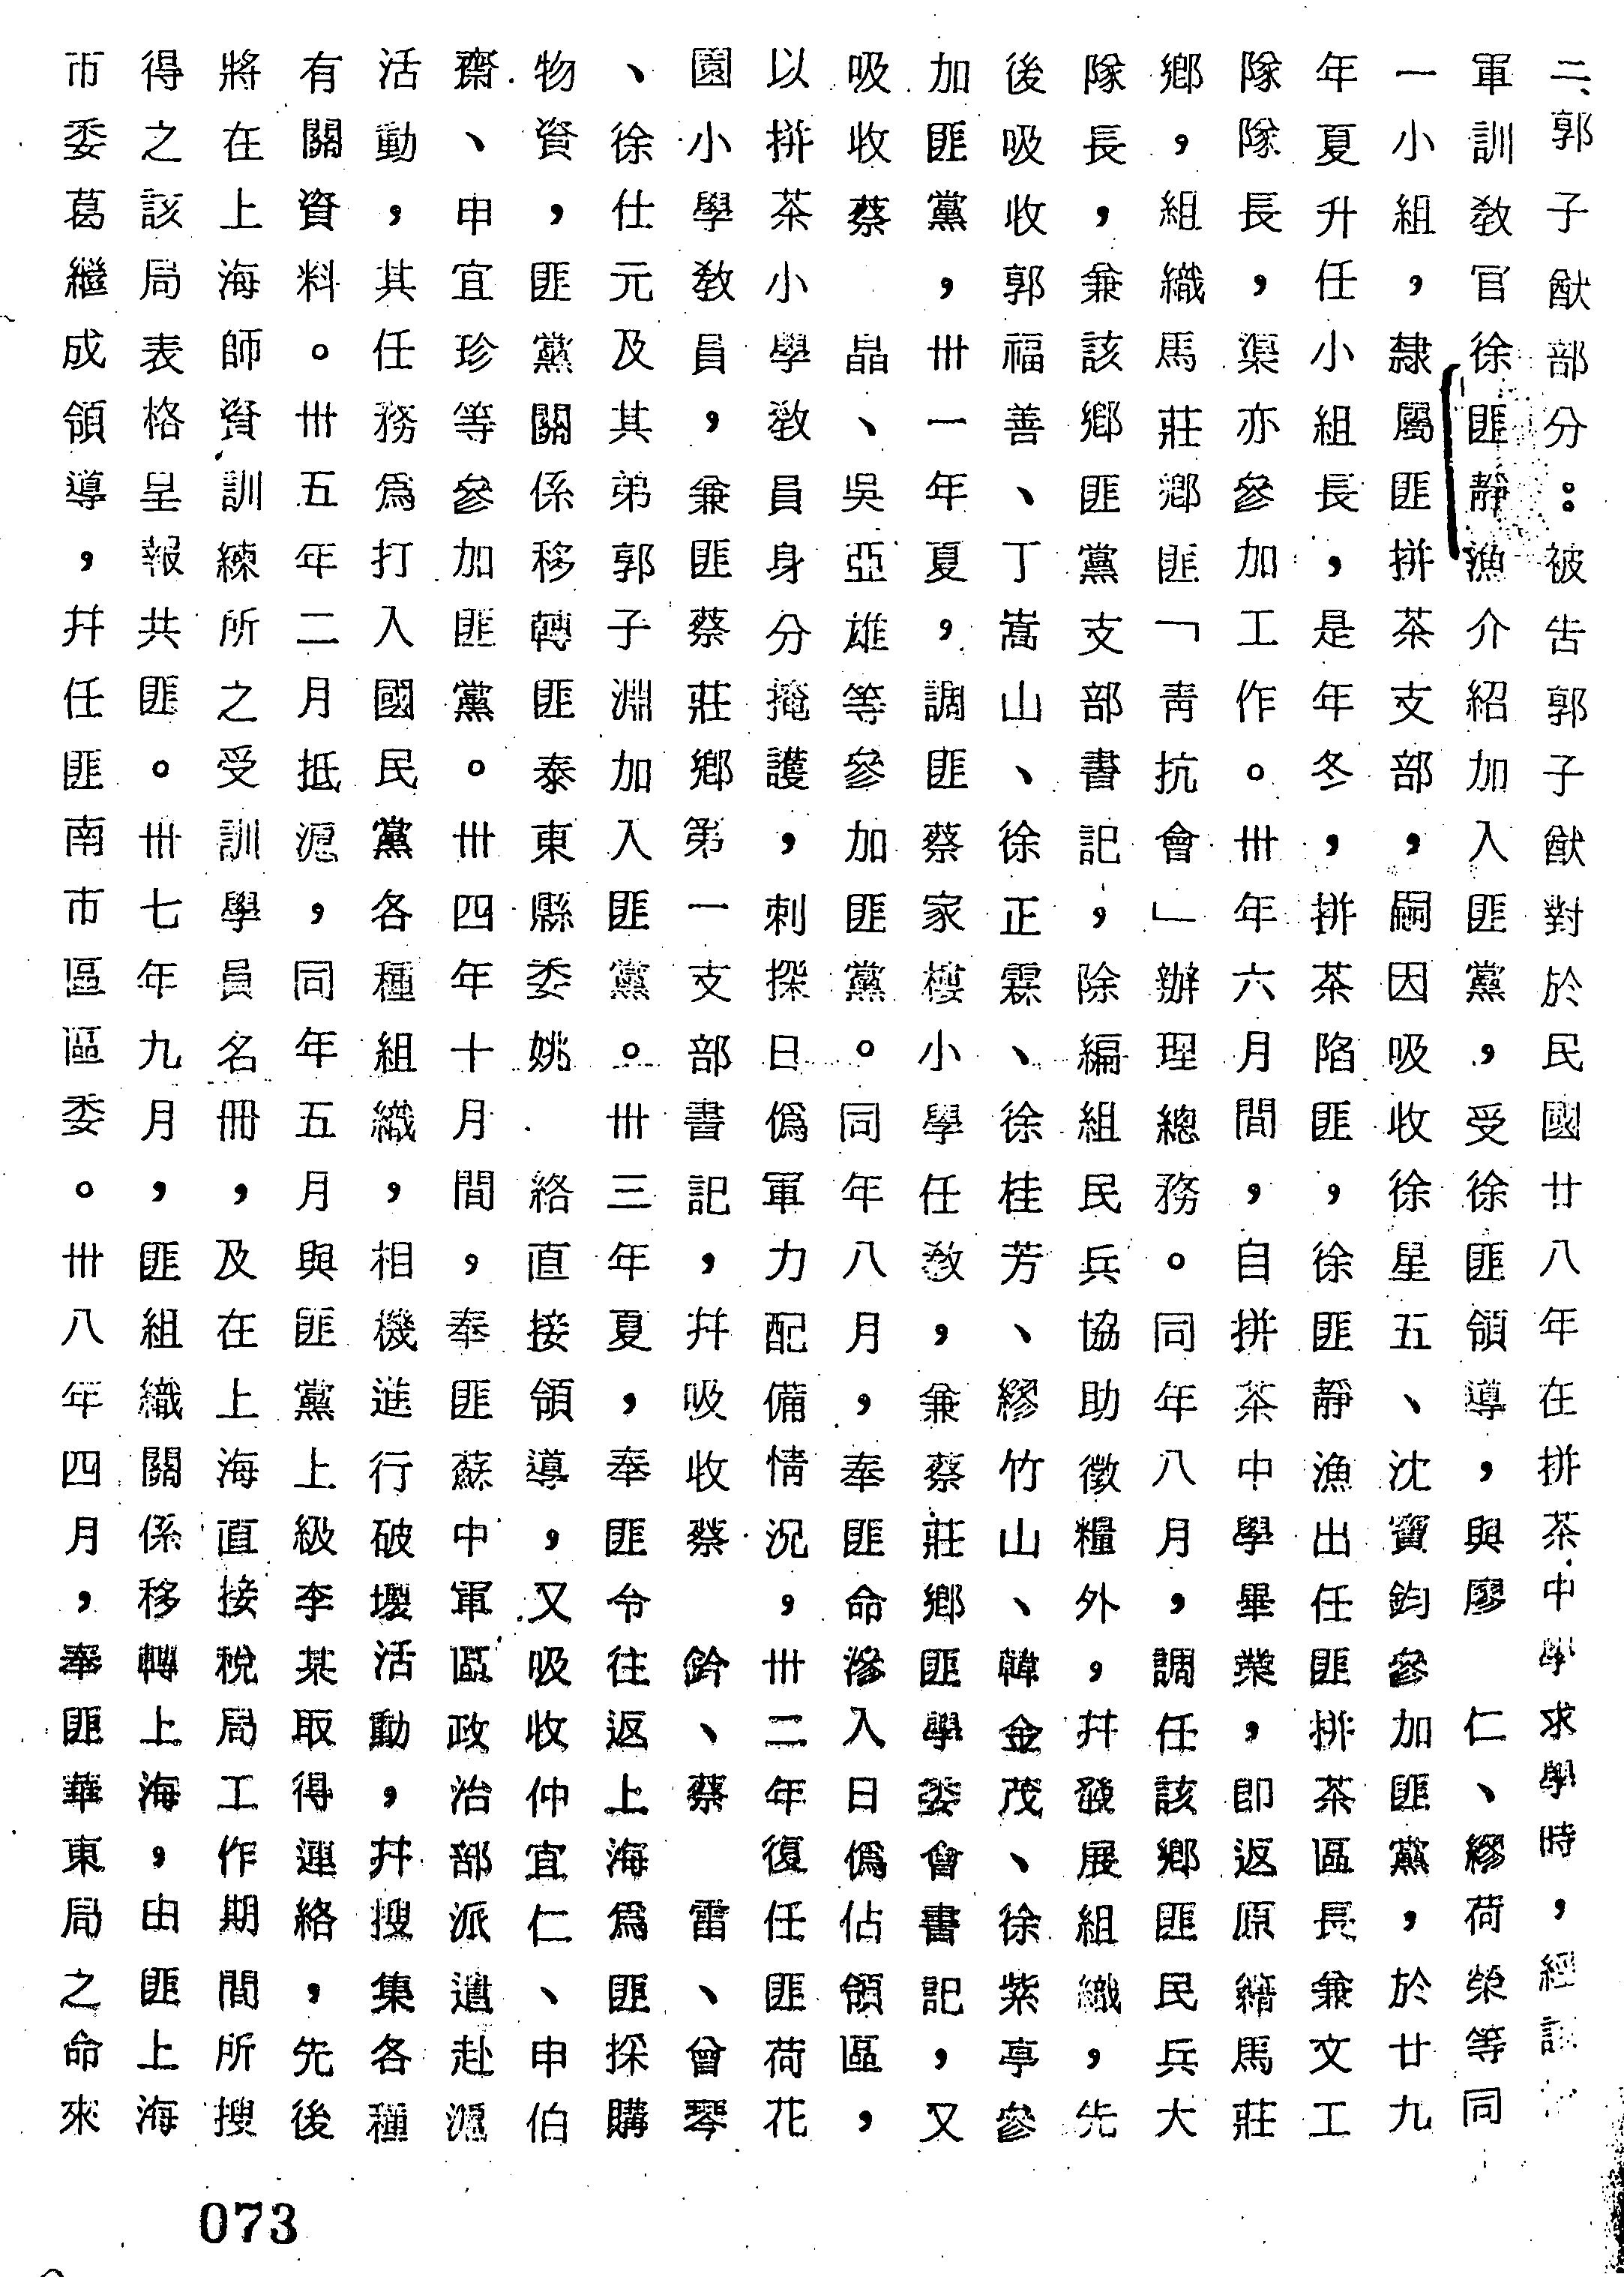 二、郭子猷部分：被告郭子猷對於民國廿八年在拼茶中學求學時，經該
軍訓教官徐匪靜漁介紹加入匪黨，受徐匪領導，與廖仁、繆荷榮等同
一小組，隸屬匪拼茶支部，嗣因吸收徐星五、沈寶鈞參加匪黨，於廿九
年夏升任小組長，是年冬，拼茶陷匪，徐匪靜漁出任匪拼茶區長兼文工
隊隊長，渠亦參加工作。卅年六月間，自拼茶中學畢業，即返原籍馬莊
鄉，組織馬莊鄉匪「青抗會」辦理總務。同年八月，調任該鄉匪民兵大
隊長，兼該鄉匪黨支部書記，除編組民兵協助徵糧外，幷發展組織，先
後吸收郭福善、丁嵩山、徐正霖、徐桂芳、繆竹山、韓金茂、徐紫亭參
加匪黨，卅一年夏，調匪蔡家樓小學任教，兼蔡莊鄉匪學委會書記，又
吸收蔡晶、吳亞雄等參加匪黨。同年八月，奉匪命滲入日偽佔領區，
以拼茶小學教員身分掩護，刺探日偽軍力配備情況，卅二年復任匪荷花
園小學教員，兼匪蔡莊鄉第一支部書記，幷吸收蔡鈴、蔡雷、曾琴
、徐仕元及其弟郭子淵加入匪黨。卅三年夏，奉匪令往返上海爲匪採購
物資，匪黨關係移轉匪泰東縣委姚絡直接領導，又吸收仲宜仁、申伯
齋、申宜珍等參加匪黨。卅四年十月間，奉匪蘇中軍區政治部派遣赴滬
活動，其任務爲打入國民黨各種組織，相機進行破壞活動，幷搜集各種
有關資料。卅五年二月抵滬，同年五月與匪黨上級李某取得連絡，先後
將在上海師資訓練所之受訓學員名冊，及在上海直接稅局工作期間所搜
得之該局表格呈報共匪。卅七年九月，匪組織關係移轉上海，由匪上海
市委葛繼成領導，幷任匪南市區區委。卅八年四月，奉匪華東局之命來
073